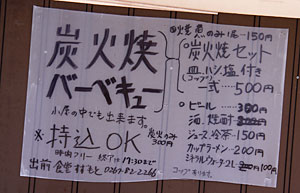 炭火焼
バーベキュー
小屋の中でも出来ます。
※持込OK
炭火のみ
300円
時間フリー 終了は17:30まで
出前 食堂 0267-82-2266
のみ1尾-150円
炭火焼セット
皿 ハシ 塩 付き
(コップ)
一式-500円
ビール
酒.
ジュース.冷茶-150円
カップラーメン-200円
ミネラルウォーター
コップあります。